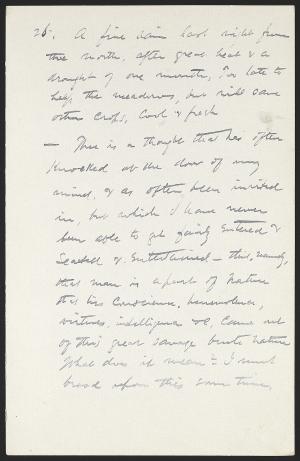 25. A fine rain last night from
the north, after great heat & a
drought of one month, too late to
help the meadows, but will save
other crops. Cool & fresh
— There is a thought that has often
knocked at the door of my
mind, & as often been invited
in, but which I have never
been able to get fairly entered &
seated & entertained — this, namely,
that man is a part of Nature
that his conscience, benevolence,
virtues, intelligence &c, came out
of this great savage brute Nature
What does it mean? I must
brood upon this some time.